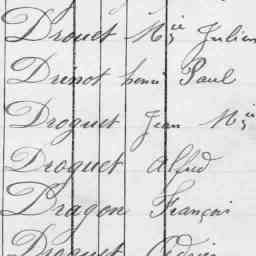 Drouet Mie Julien
Drinot henri Paul
Droguet Jean Mie
Droguet Alfred
Dragon François
Droguet